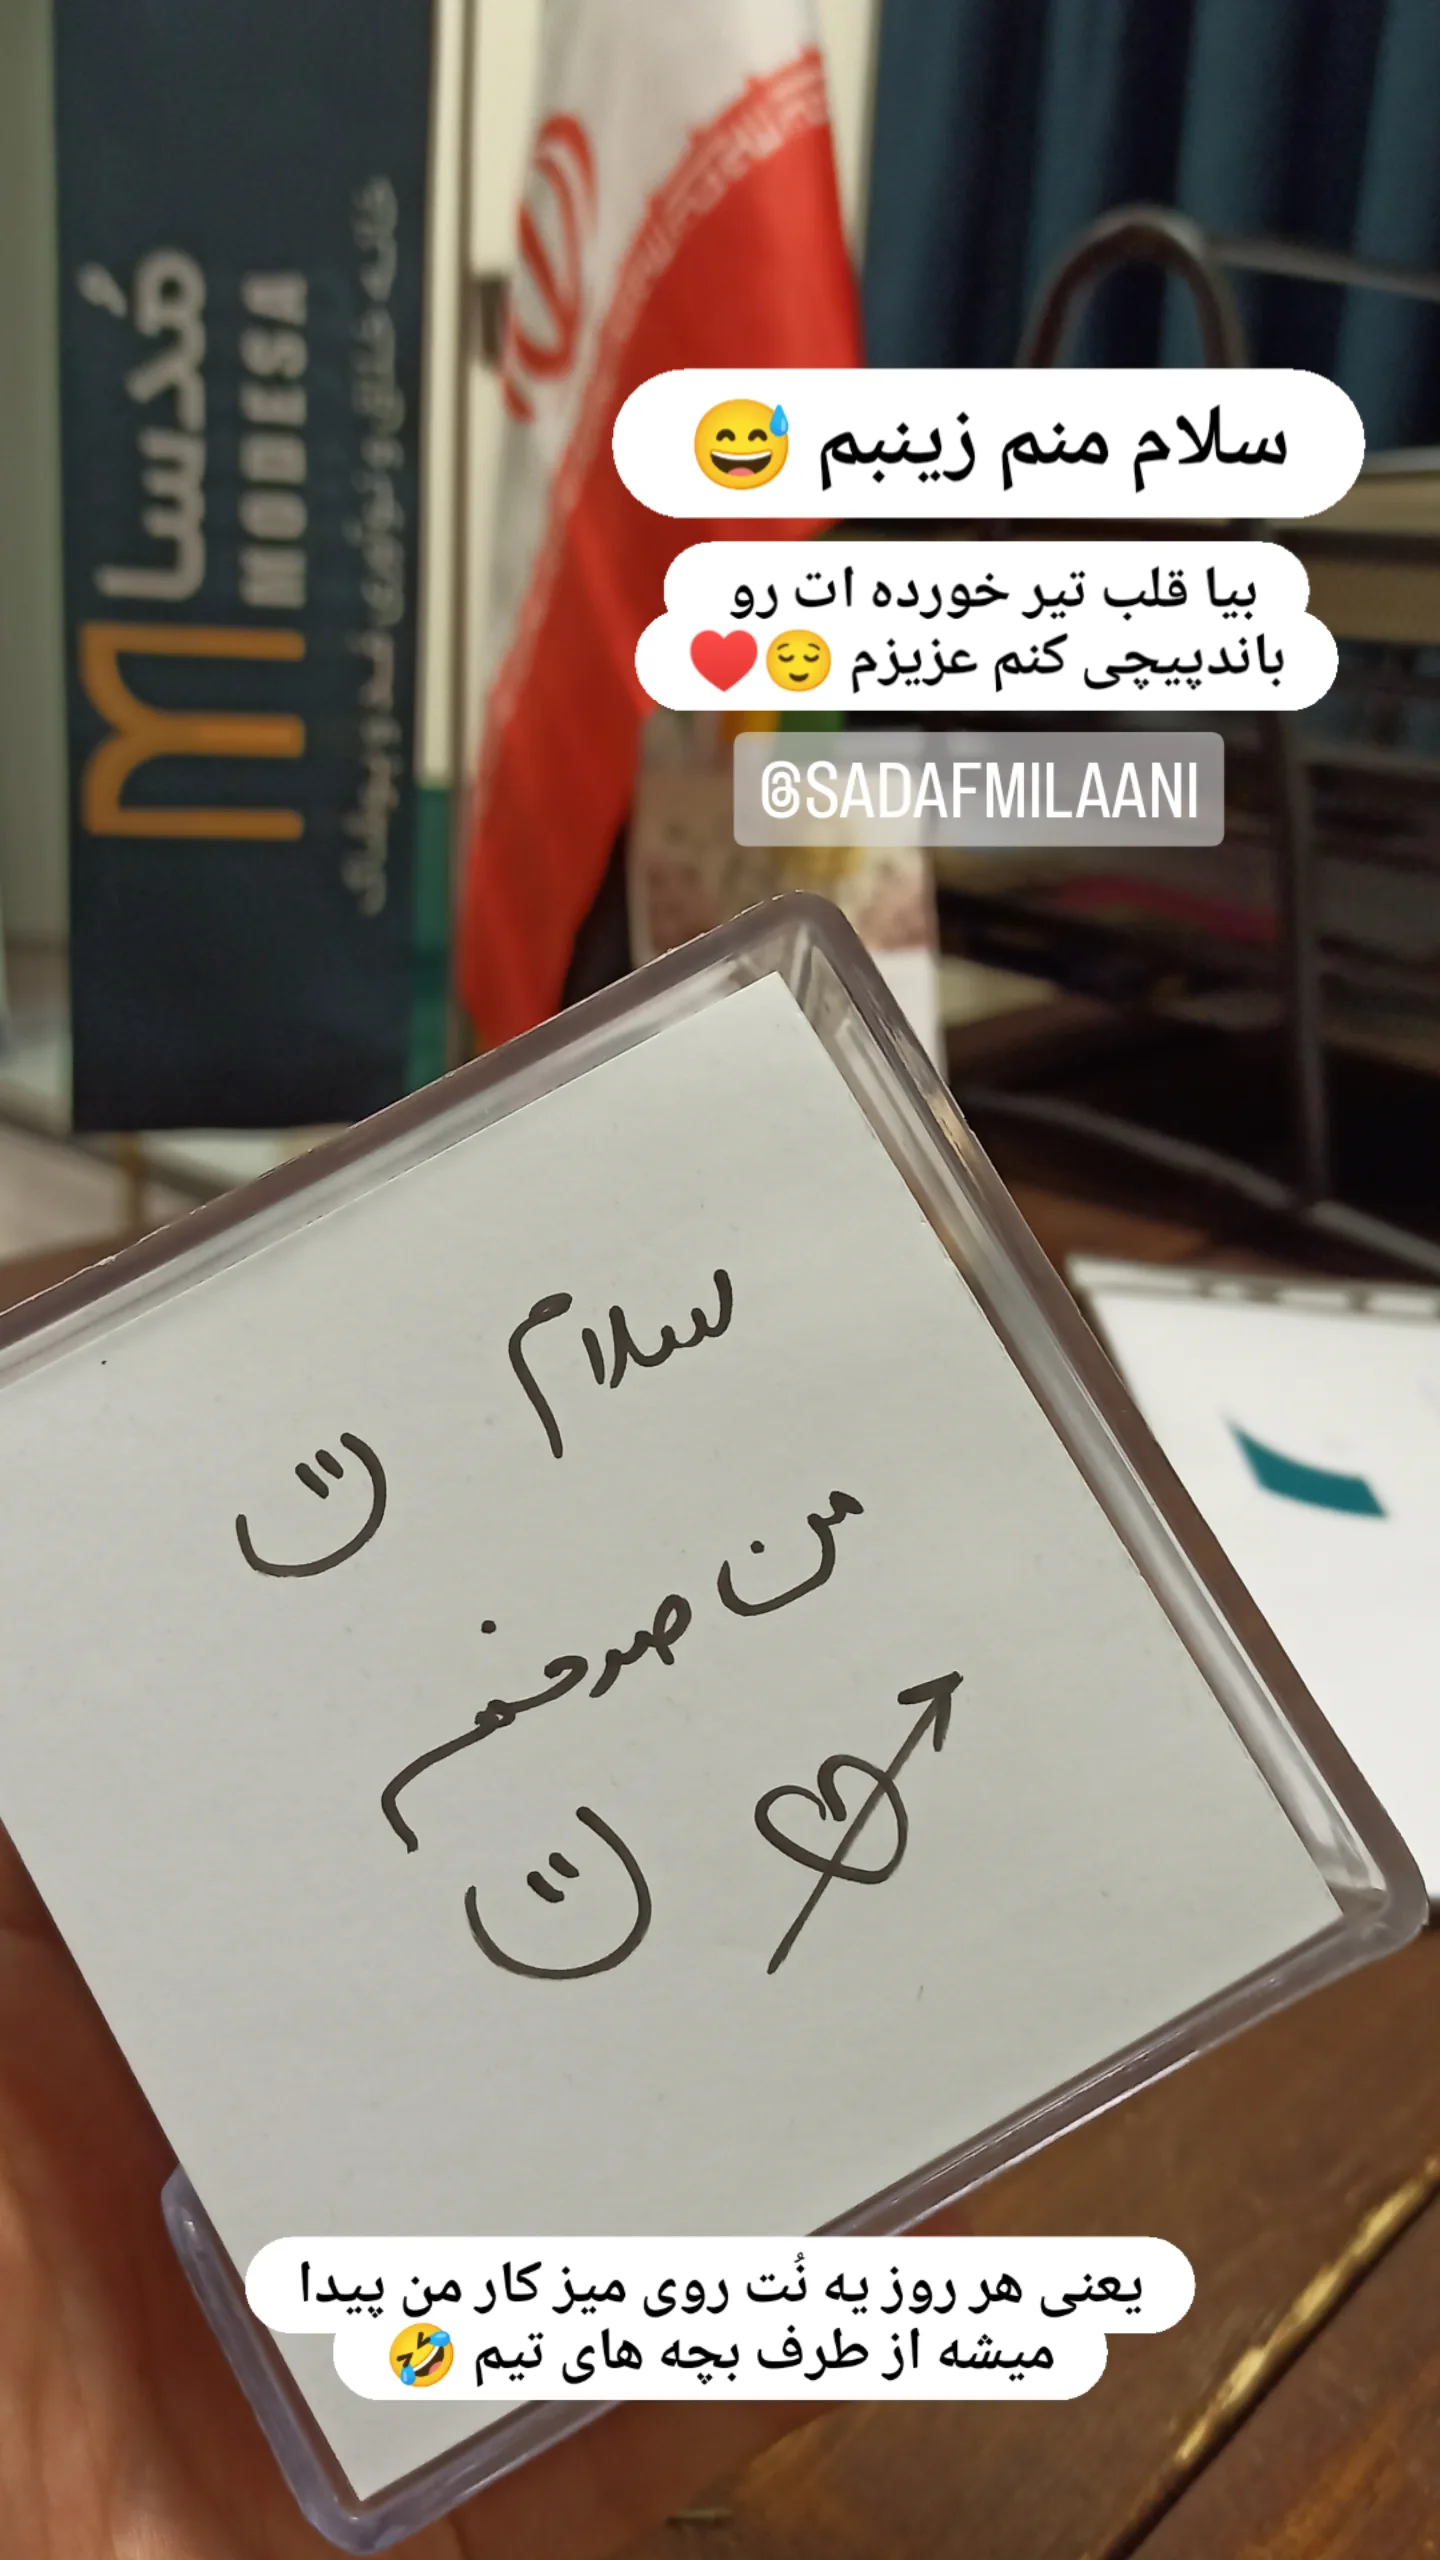 مُدسا
MODESA
خانه خلاق و نوآوری مُد و پوشاک
سلام منم زینبم 😅
بیا قلب تیر خورده ات رو
باندپیچی کنم عزیزم 😌♥️
@SADAFMILAANI
سلام
من
یعنی هر روز یه نُت روی میز کار من پیدا
میشه از طرف بچه های تیم 🤣